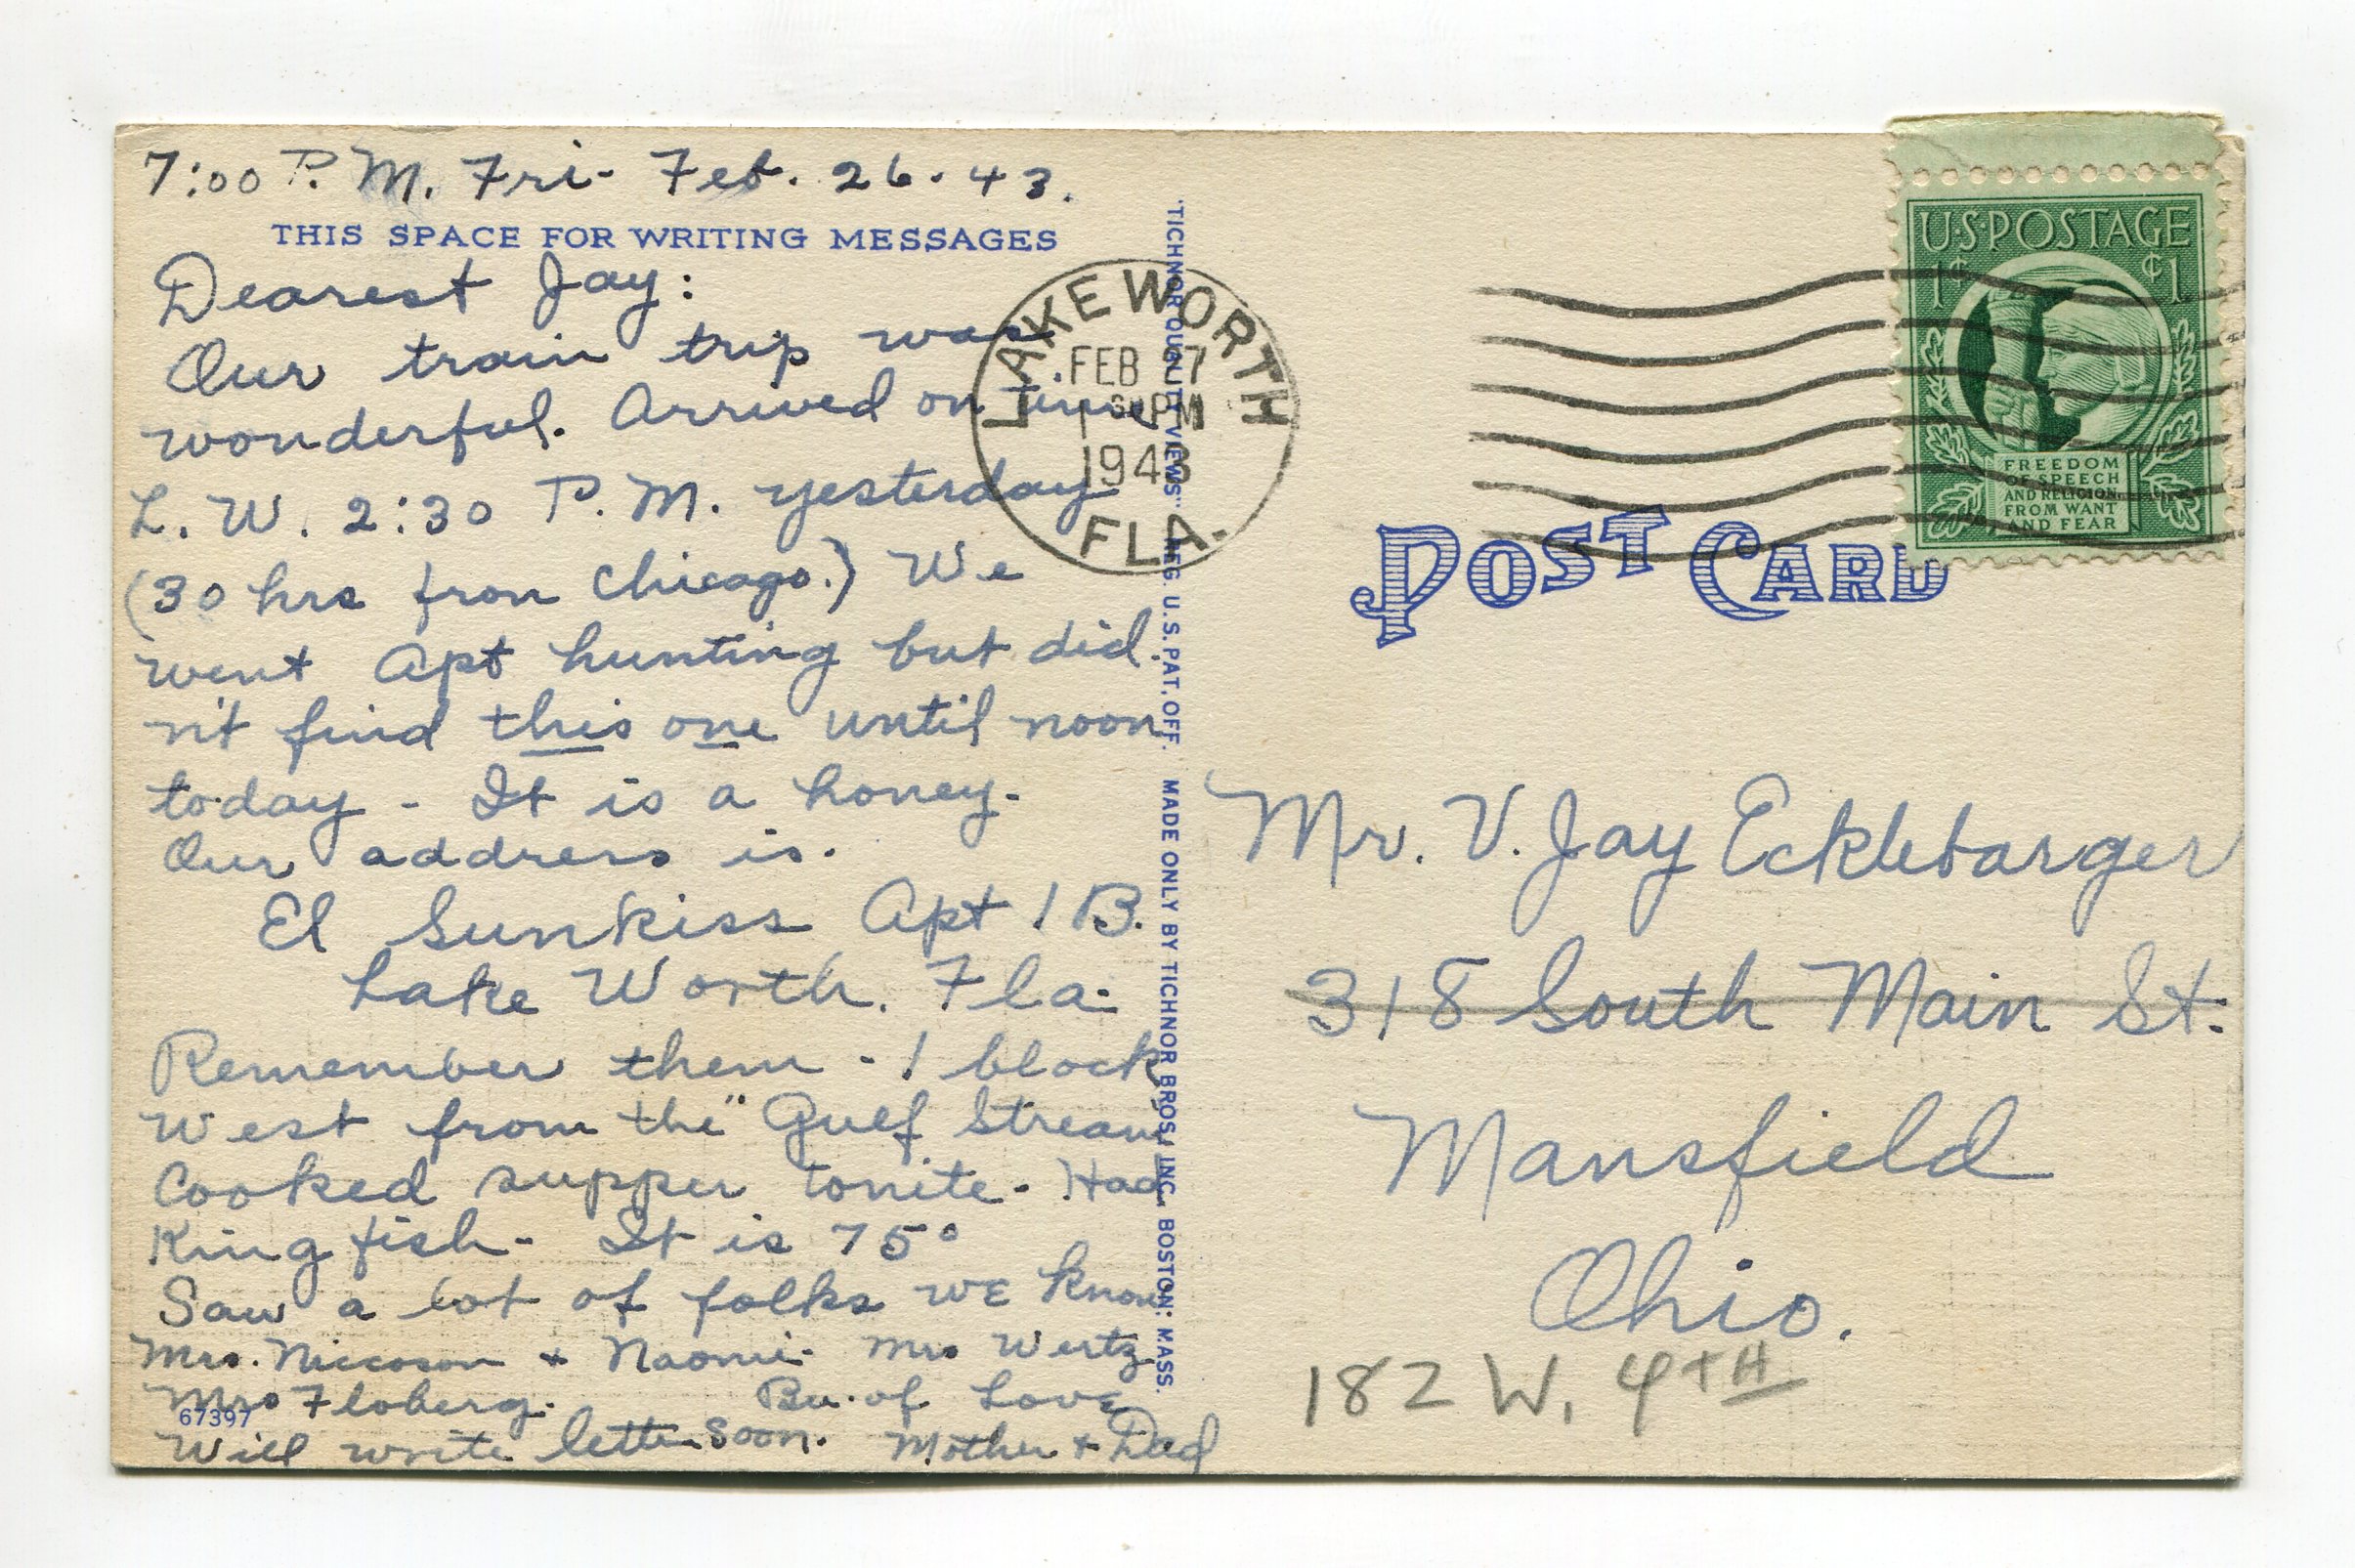 7:00 P.M. Fri- Feb. 26. 43.
THIS SPACE FOR WRITING MESSAGES
Dearest Jay:
Our train trip was
wonderful. Arrived on time
L. W. 2:30 P.M. yesterday
(30 hrs from Chicago.) We
went Apt hunting but did
n't find this one until noon
today - It is a honey.
Our address is.
El Sunkiss Apt 1B.
Lake Worth. Fla.
Remember them - 1 block
West from the "Gulf Stream
Cooked supper tonite. Had
King fish- It is 75°
Saw a lot of folks we know
Mrs. Niccoson + Naomi. Mrs Wertz
Mrs Floberg. Bu. of Love
67397
Will write letter soon. Mother + Dad
"TICHNOR QUALITY VIEWS" REG. U.S. PAT. OFF. MADE ONLY BY TICHNOR BROS. INC., BOSTON, MASS.
LAKE WORTH
FEB 27
PM
1943
FLA.
U.S. POSTAGE
1¢ ¢1
FREEDOM
OF SPEECH
AND RELIGION,
FROM WANT
AND FEAR
POST CARD
Mr. V. Jay Ecklebarger
318 South Main St.
Mansfield
Ohio.
182 W. 4TH